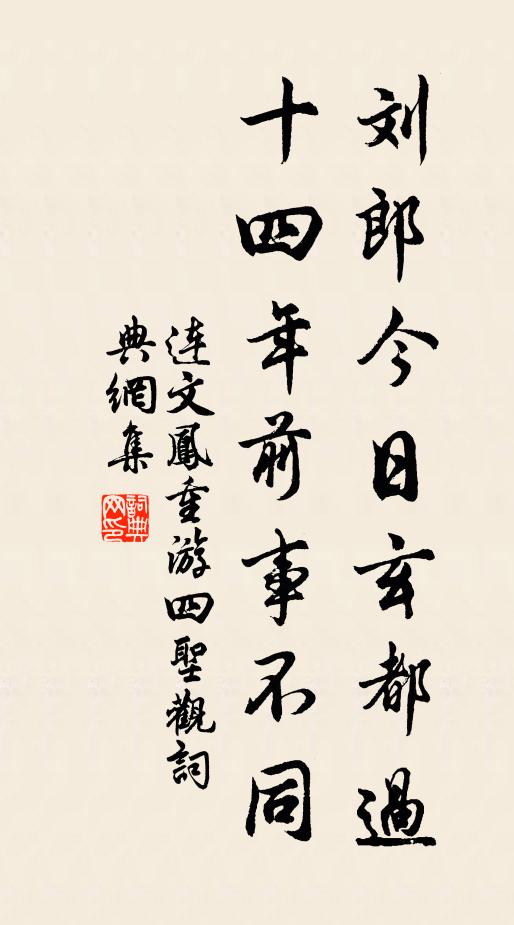 刘郎今日玄都過
十四年前事不同
連文鳳重游四聖觀詞
典網集
詞典網印